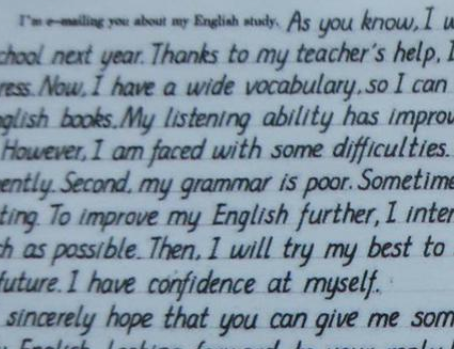 I'm e-mailing you about my English study. As you know, I w
chool next year. Thanks to my teacher's help, I
ress. Now, I have a wide vocabulary, so I can
glish books. My listening ability has improv
However, I am faced with some difficulties.
ently. Second, my grammar is poor. Sometime
ting. To improve my English further, I inten
ch as possible. Then, I will try my best to
future. I have confidence at myself.
sincerely hope that you can give me som
English. Looking forward to your reply